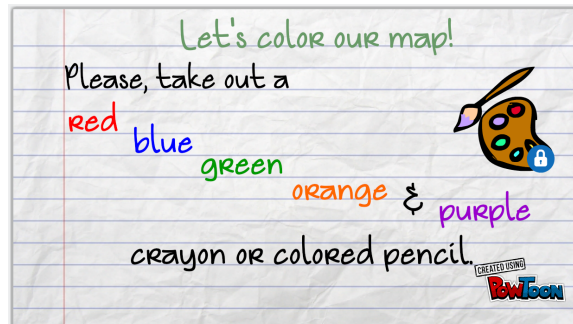 Let's color our map!
Please, take out a
red
blue
green
orange &
purple
crayon or colored pencil.
CREATED USING
POWTOON